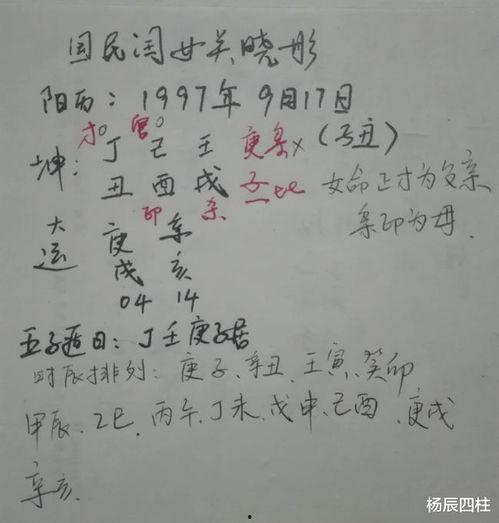 国民闺女关晓彤
阳历：1997年9月17日
才 官
坤：丁己壬庚枭x（子丑）
丑酉戌子比 女命正才为父亲
印 杀 枭印为母.
大运 庚 辛
戌 亥
04 14
五子遁日：丁壬庚子居
时辰排列：庚子、辛丑、壬寅、癸卯
甲辰、乙巳、丙午、丁未、戊申、己酉、庚戌
辛亥.
杨辰四柱